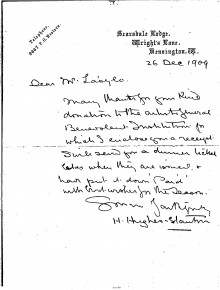 Telephone,
Scarsdale Lodge,
Wright's Lane,
Kensington, W.
26 Dec 1909
Dear Mr
Many thanks for your kind
donation to the Artists General
Benevolent Institution for
which I enclose you a receipt
I will send you a dinner ticket
when they are issued, &
have put it down 'Paid'
with best wishes for the Season.
H. Hughes-Stanton